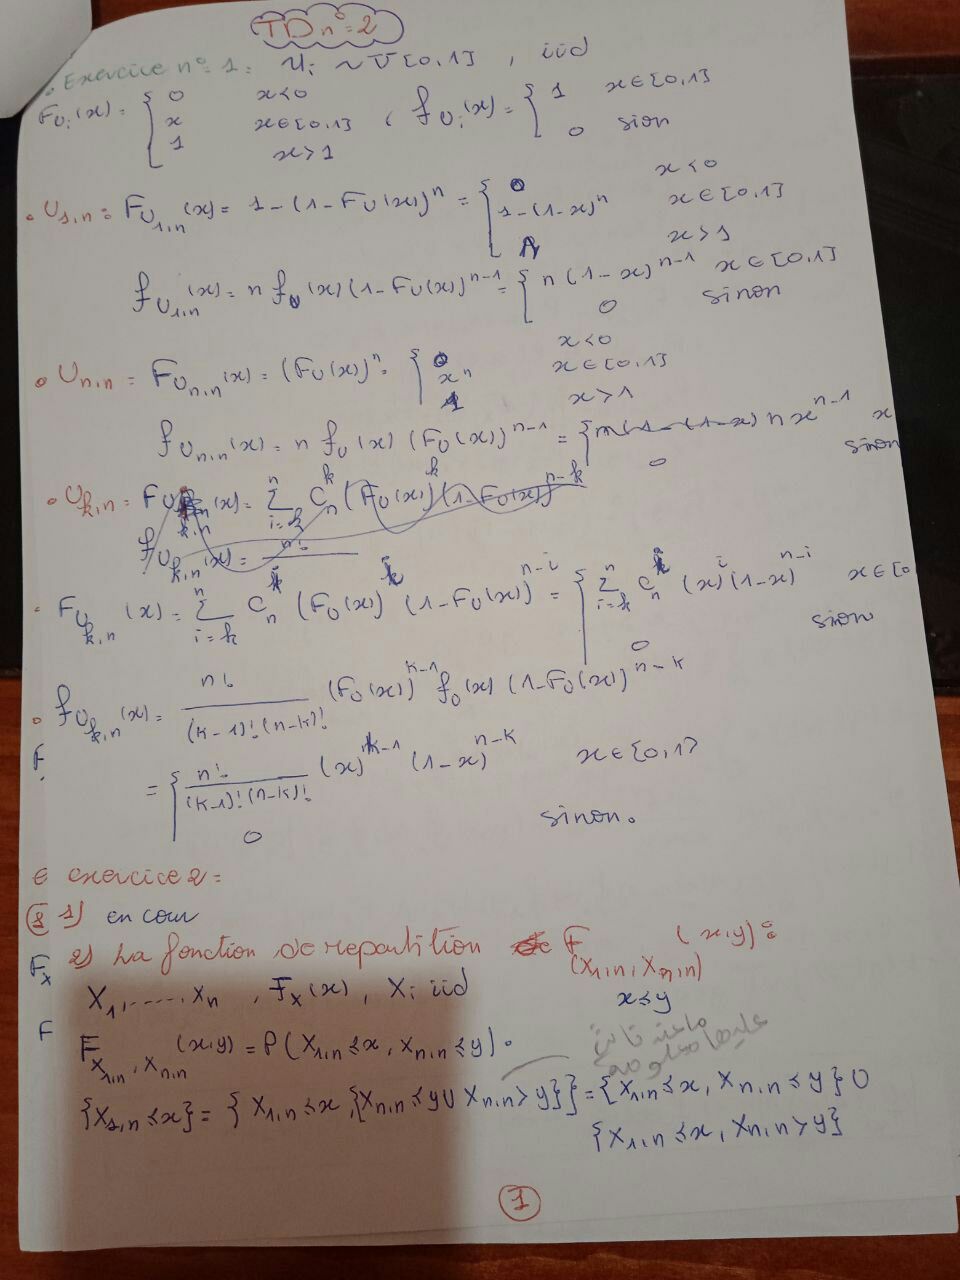 TD n°=2
Exercice n°= 1: U_i ~ U[0,1] , iid
F_{U_i}(x) = { 0 x<0 ; x x∈[0,1] ; 1 x>1 , f_{U_i}(x) = { 1 x∈[0,1] ; 0 sion
• U_{1,n} = F_{U_{1,n}}(x) = 1-(1-F_U(x))^n = { 0 x<0 ; 1-(1-x)^n x∈[0,1] ; 1 x>1
f_{U_{1,n}}(x) = n f_U(x) (1-F_U(x))^{n-1} = { n(1-x)^{n-1} x∈[0,1] ; 0 sinon
• U_{n,n} = F_{U_{n,n}}(x) = (F_U(x))^n = { 0 x<0 ; x^n x∈[0,1] ; 1 x>1
f_{U_{n,n}}(x) = n f_U(x) (F_U(x))^{n-1} = { n x^{n-1} x ; 0 sinon
• U_{k,n} = F_{U_{k,n}}(x) = Σ_{i=k}^n C_n^k (F_U(x))^k (1-F_U(x))^{n-k}
f_{U_{k,n}}(x) = n!
• F_{U_{k,n}}(x) = Σ_{i=k}^n C_n^i (F_U(x))^i (1-F_U(x))^{n-i} = { Σ_{i=k}^n C_n^i (x)^i (1-x)^{n-i} x∈[0 ; 0 sinon
• f_{U_{k,n}}(x) = n!/((k-1)!(n-k)!) (F_U(x))^{k-1} f_U(x) (1-F_U(x))^{n-k}
F
= { n!/((k-1)!(n-k)!) (x)^{k-1} (1-x)^{n-k} x∈[0,1] ; 0 sinon.
E exercice 2 =
1) en cour
F_X 2) La fonction de repartition F_{(X_{1,n}, X_{n,n})}(x,y) :
X_1,....,X_n , F_X(x) , X_i iid x≤y
F F_{X_{1,n}, X_{n,n}}(x,y) = P(X_{1,n} ≤ x, X_{n,n} ≤ y).
عليها معلومة
{X_{1,n} ≤ x} = { X_{1,n} ≤ x, {X_{n,n} ≤ y ∪ X_{n,n} > y}} = {X_{1,n} ≤ x, X_{n,n} ≤ y} ∪
{X_{1,n} ≤ x, X_{n,n} > y}
1